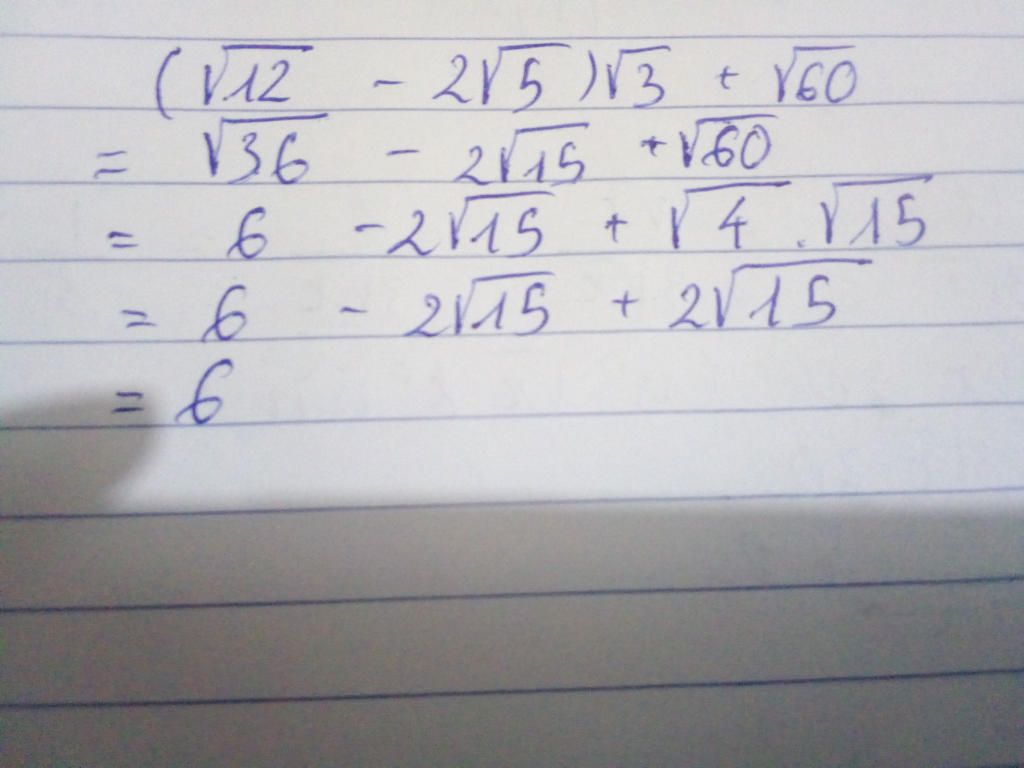 (√12 - 2√5)√3 + √60
= √36 - 2√15 + √60
= 6 - 2√15 + √4 . √15
= 6 - 2√15 + 2√15
= 6